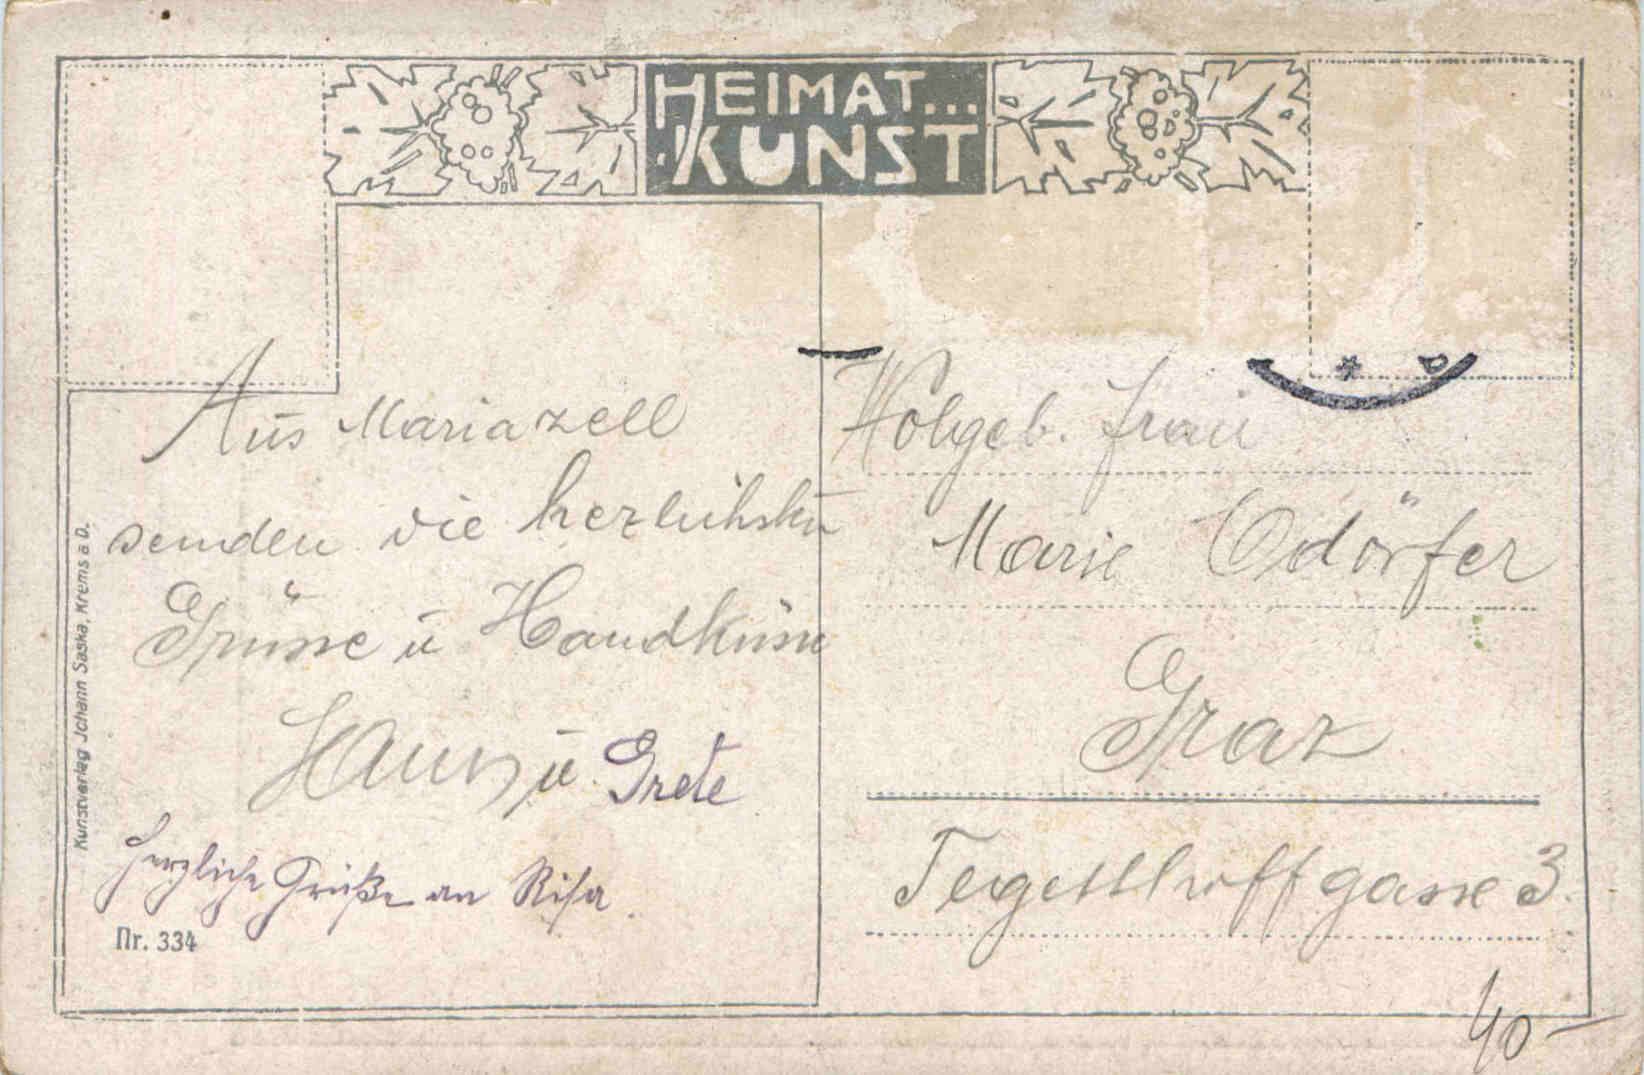 HEIMAT...
KUNST
Aus Mariazell
senden die herzlichsten
Grüsse u Handküsse
Hans u. Grete
Herzliche Grüße an Risa.
Nr. 334
Kunstverlag Johann Saska, Krems a D.
Wolgeb. Frau
Marie Odörfer
Graz
Tegetthoffgasse 3.
40-